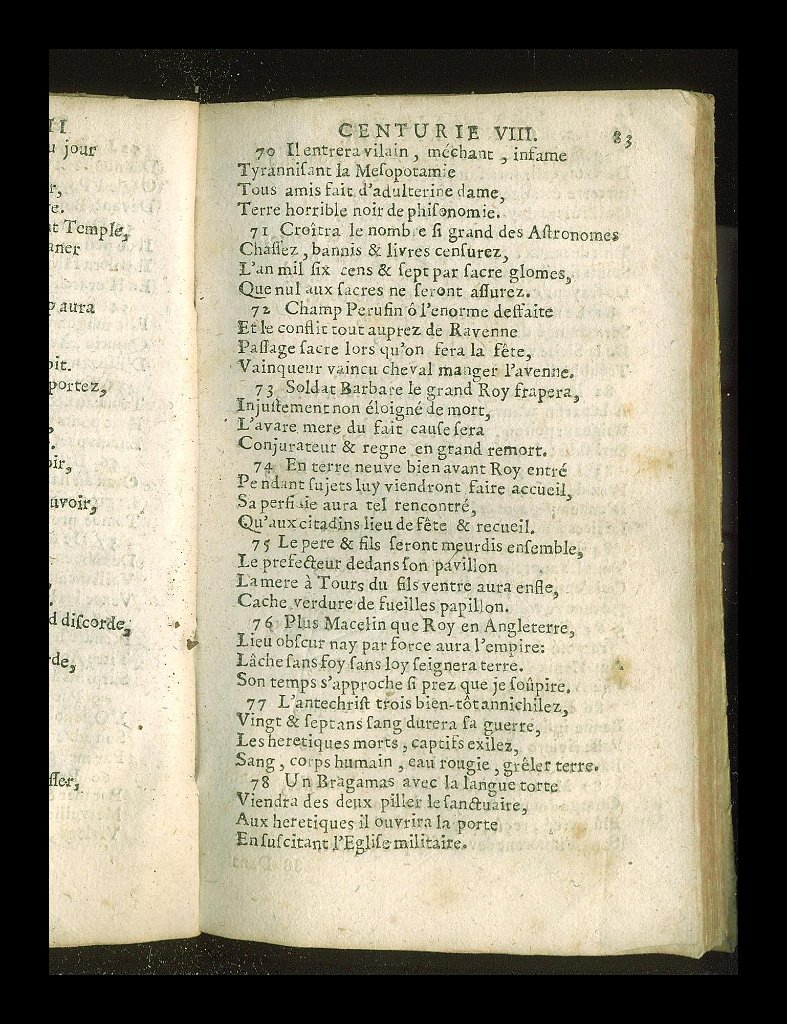 II
jour
r,
Temple,
aner
aura
oit.
portez,
,
oir,
uvoir,
,
d diſcorde,
rde,
ſſer,
CENTURIE VIII. 83
70 Il entrera vilain, méchant, infame
Tyranniſant la Meſopotamie
Tous amis fait d'adulterine dame,
Terre horrible noir de phiſonomie.
71 Croîtra le nomb e ſi grand des Aſtronomes
Chaſſez, bannis & livres cenſurez,
L'an mil ſix cens & ſept par ſacre glomes,
Que nul aux ſacres ne ſeront aſſurez.
72 Champ Peruſin ô l'enorme deffaite
Et le conflit tout auprez de Ravenne
Paſſage ſacre lors qu'on fera la fête,
Vainqueur vaincu cheval manger l'avenne.
73 Soldat Barbare le grand Roy frapera,
Injuſtement non éloigné de mort,
L'avare mere du fait cauſe ſera
Conjurateur & regne en grand remort.
74 En terre neuve bien avant Roy entré
Pendant ſujets luy viendront faire accueil,
Sa perfidie aura tel rencontré,
Qu'aux citadins lieu de fête & recueil.
75 Le pere & fils ſeront meurdis enſemble,
Le prefecteur dedans ſon pavillon
La mere à Tours du fils ventre aura enfle,
Cache verdure de fueilles papillon.
76 Plus Macelin que Roy en Angleterre,
Lieu obſcur nay par force aura l'empire:
Lâche ſans foy ſans loy ſeignera terre.
Son temps s'approche ſi prez que je ſoûpire.
77 L'antechriſt trois bien-tôt annichilez,
Vingt & ſept ans ſang durera ſa guerre,
Les heretiques morts, captifs exilez,
Sang, corps humain, eau rougie, grêler terre.
78 Un Bragamas avec la langue torte
Viendra des deux piller le ſanctuaire,
Aux heretiques il ouvrira la porte
En ſuſcitant l'Egliſe militaire.